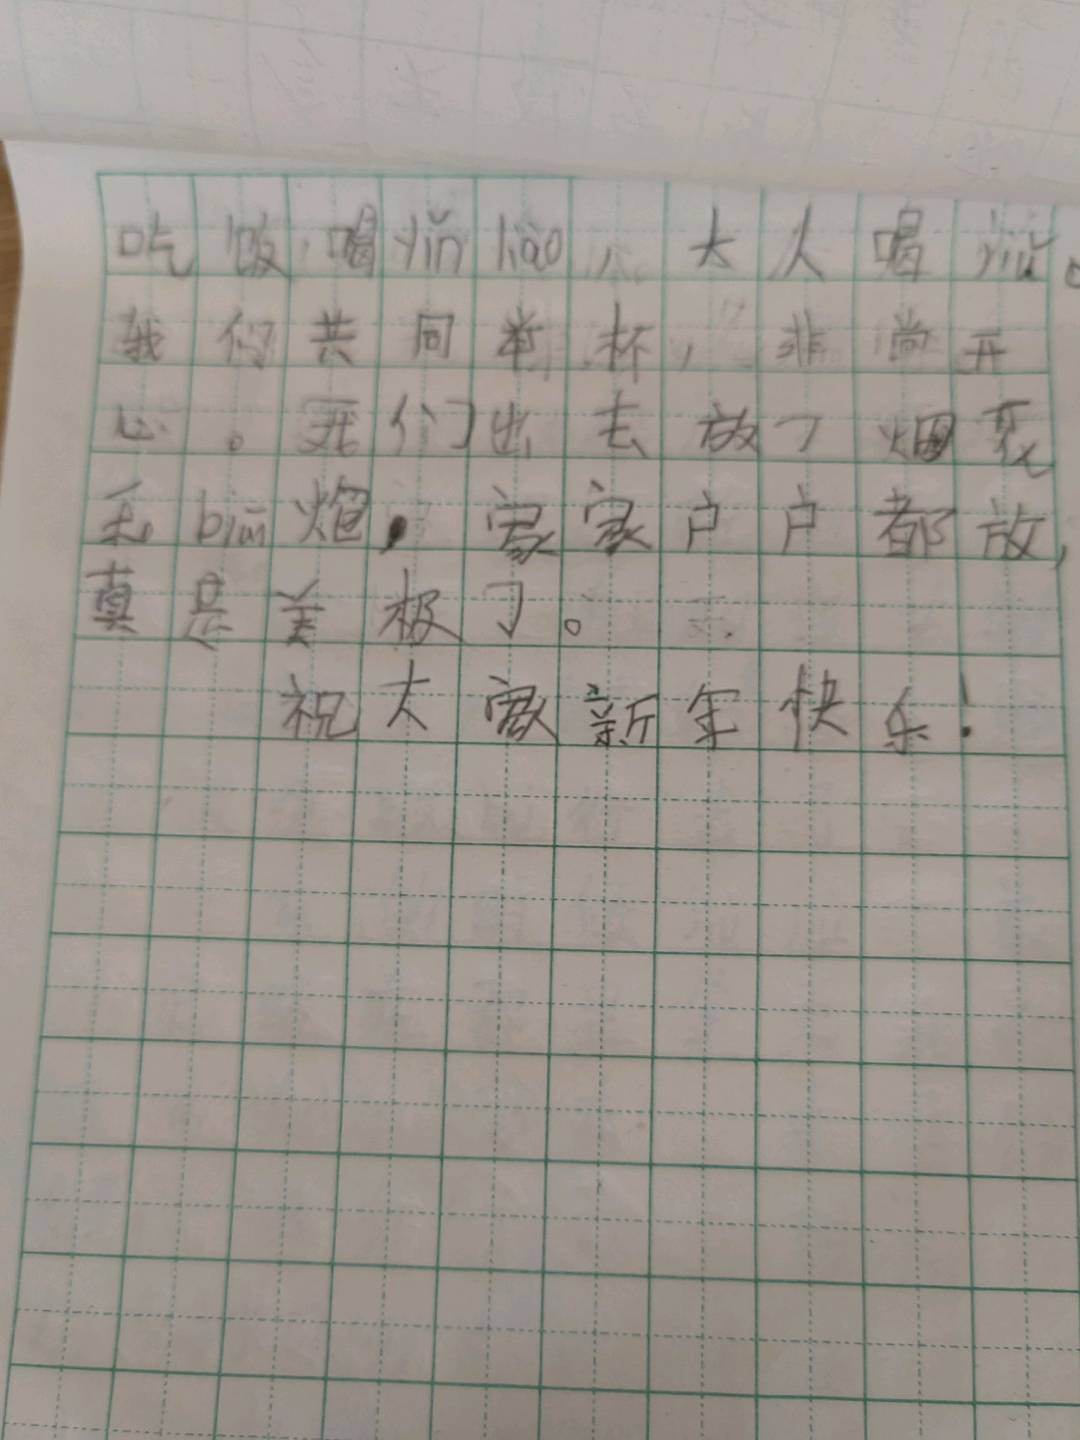 吃饭喝yǐn liào，大人喝jiǔ。
我们共同举杯，非常开
心。我们出去放了烟花
和biān炮，家家户户都放，
真是美极了。
祝大家新年快乐！